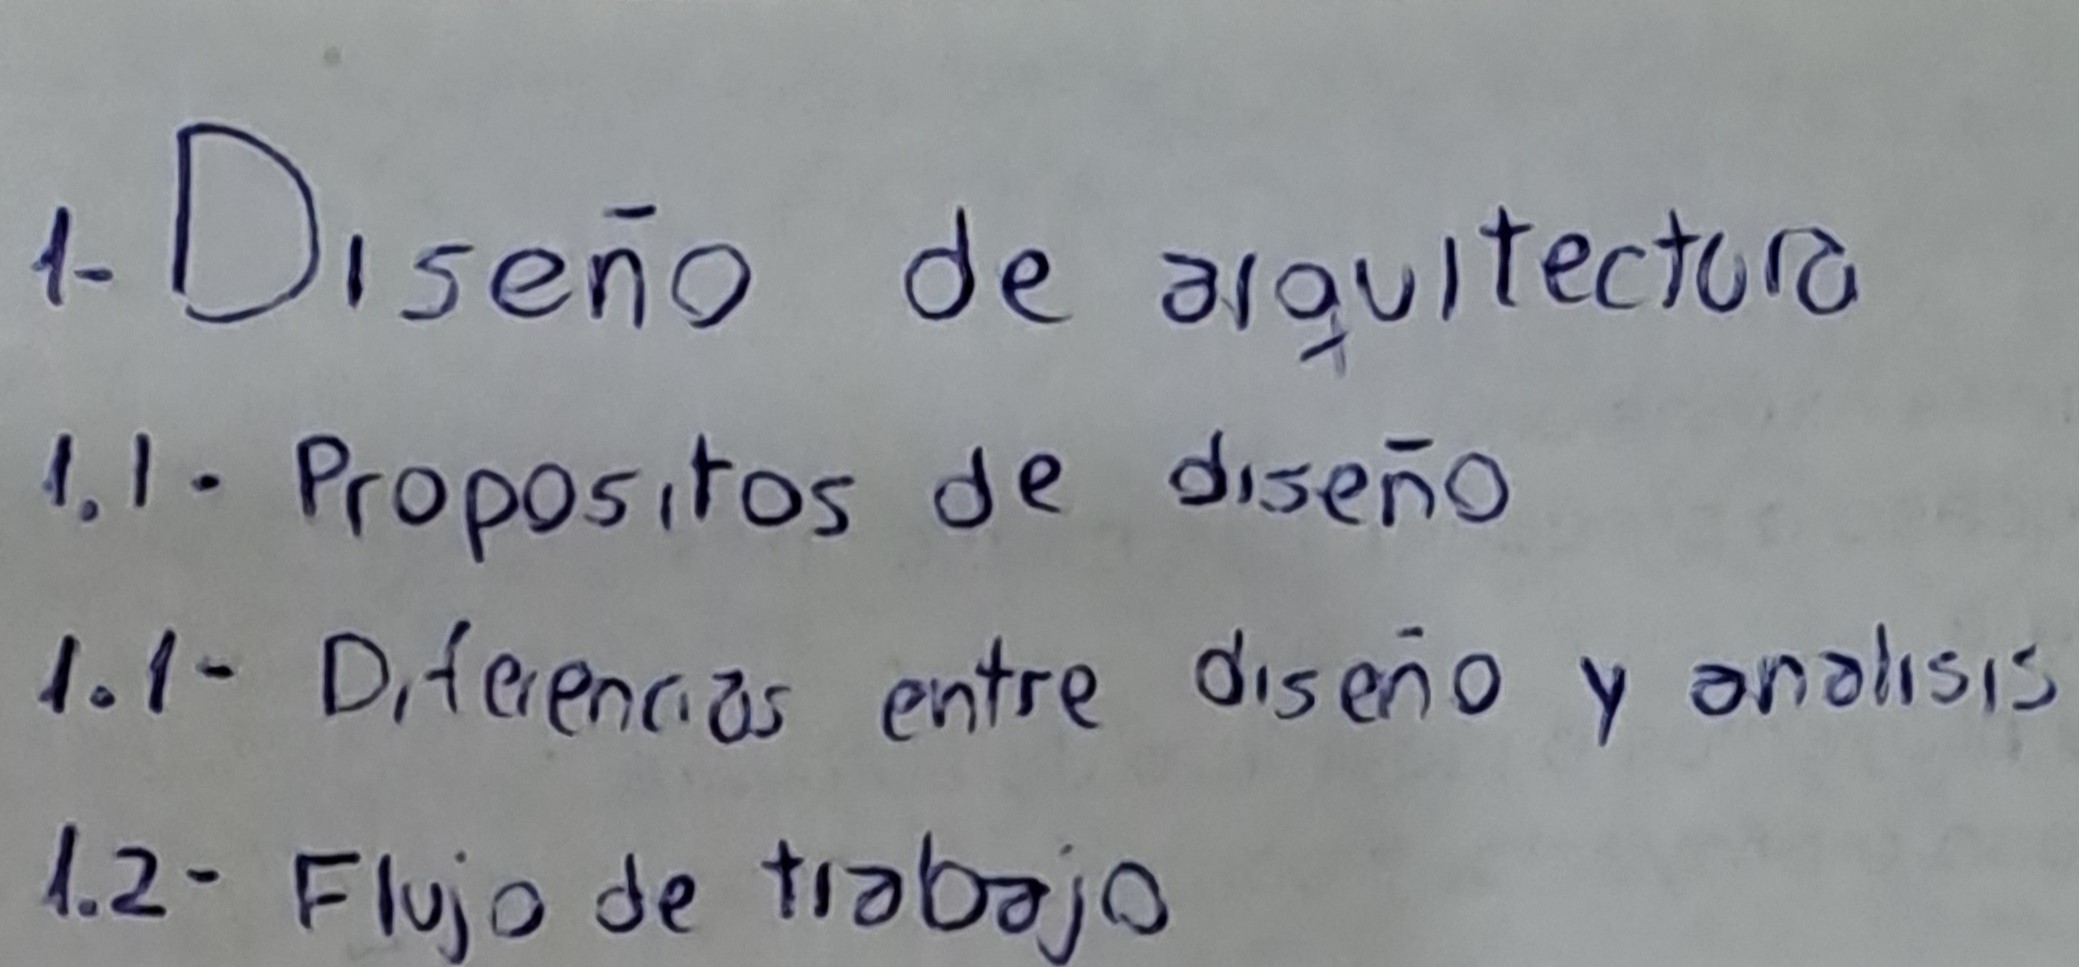 1- Diseño de arquitectura
1.1- Propositos de diseño
1.1- Diferencias entre diseño y analisis
1.2- Flujo de trabajo